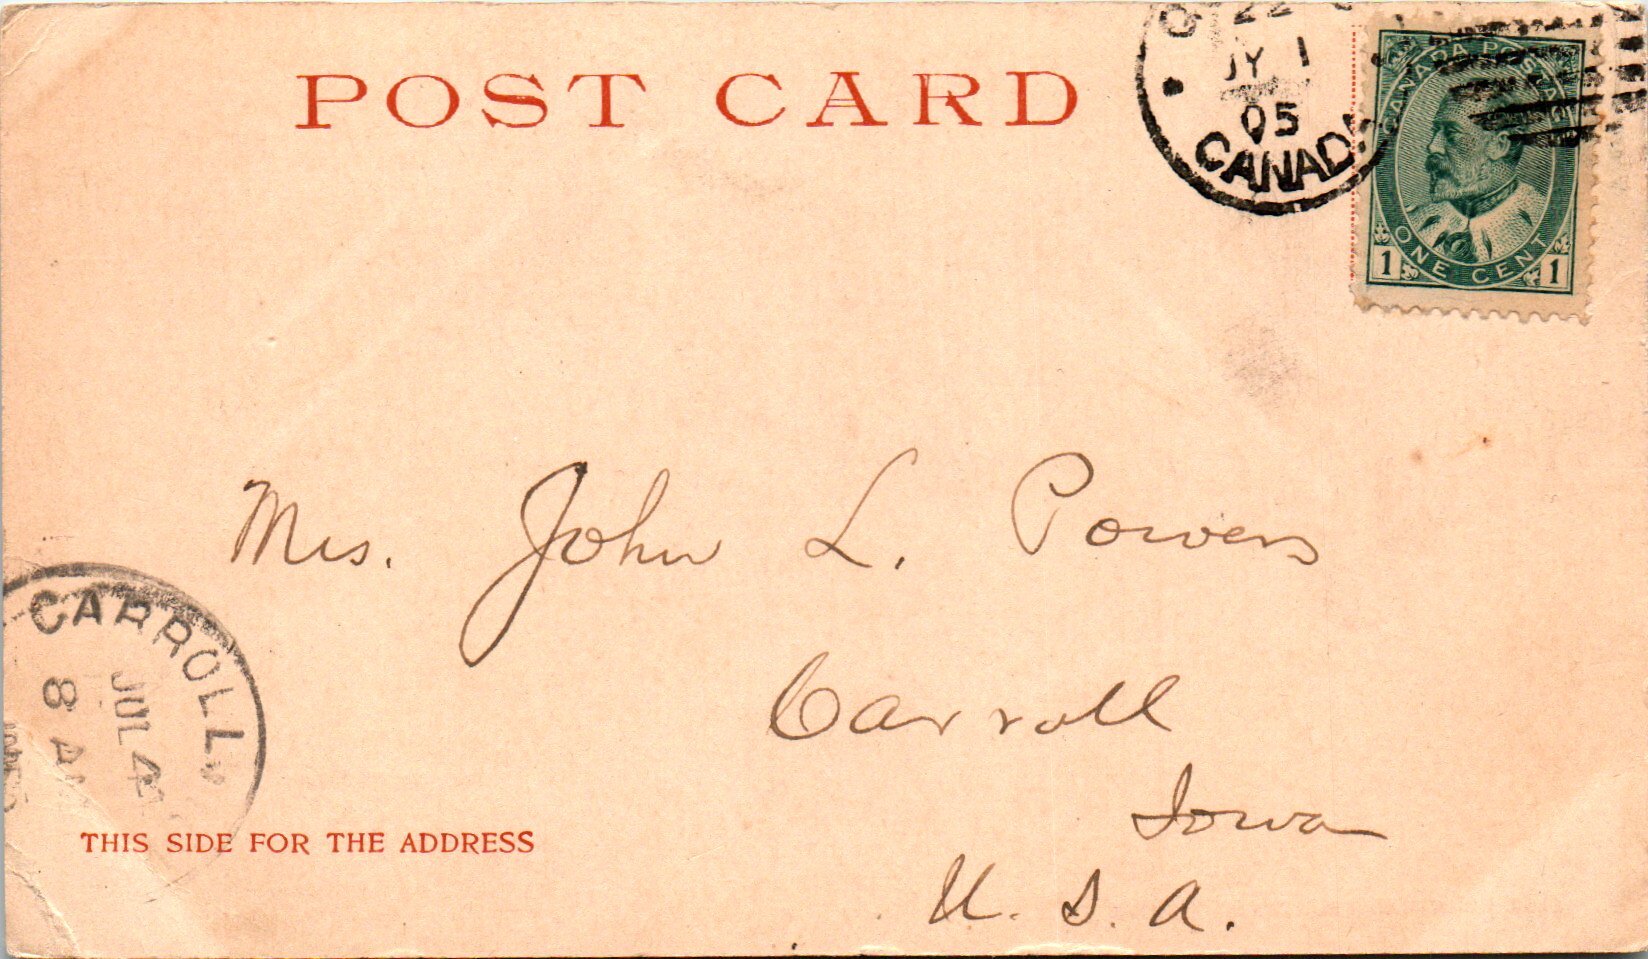 POST CARD
22
JY 1
05
CANADA
CANADA POSTAGE
ONE CENT
1 1
Mrs. John L. Powers
Carroll
Iowa
U. S. A.
CARROLL
JUL 4
8 A
THIS SIDE FOR THE ADDRESS